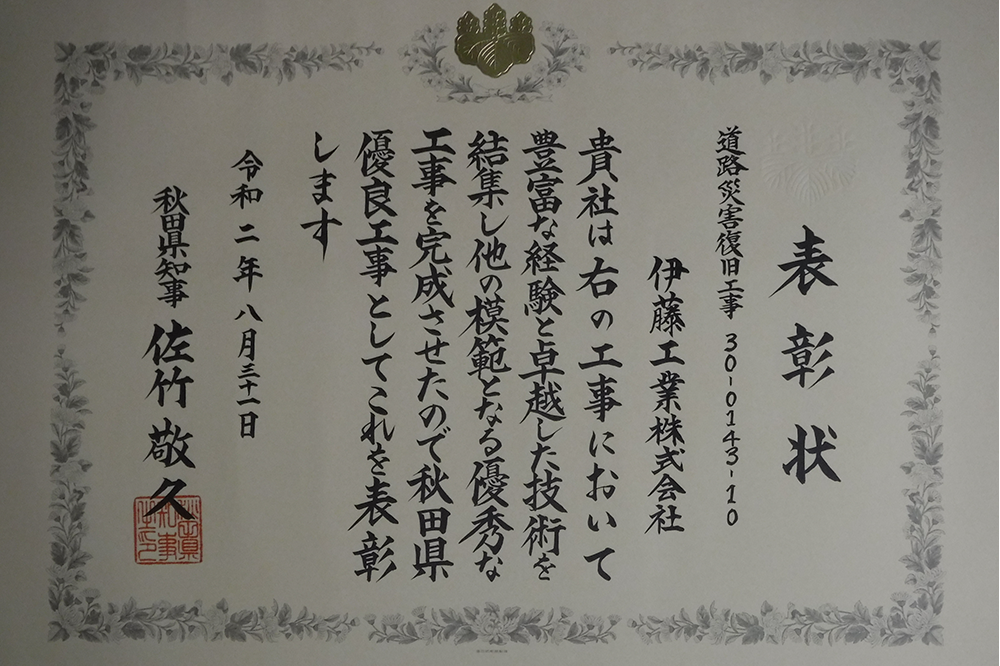 表彰状
道路災害復旧工事 30-0143-10
伊藤工業株式会社
貴社は右の工事において
豊富な経験と卓越した技術を
結集し他の模範となる優秀な
工事を完成させたので秋田県
優良工事としてこれを表彰
します
令和二年八月三十一日
秋田県知事 佐竹敬久